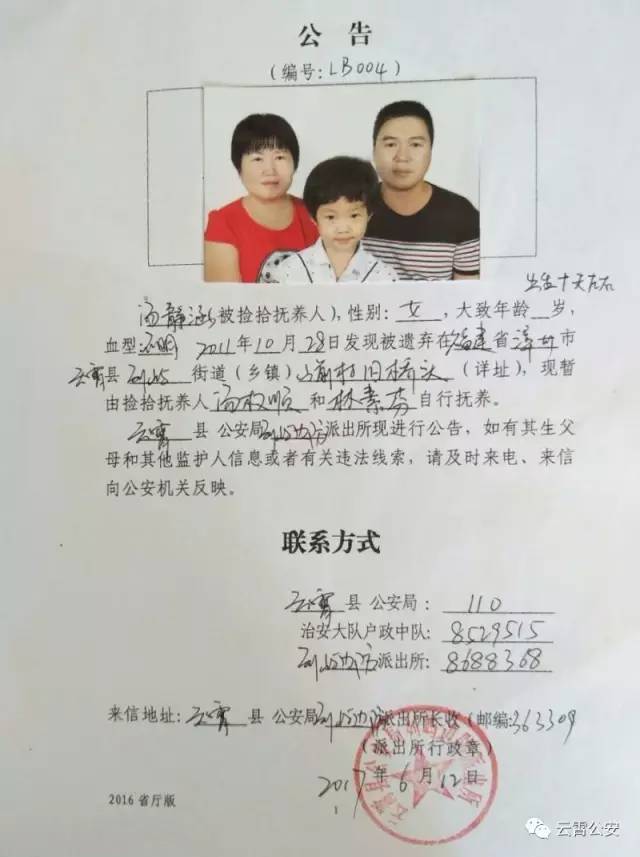 公 告
（编号：LB004）
出生十天左右
汤静涵（被捡拾抚养人），性别：女，大致年龄 岁，
血型不明，2011年10月28日发现被遗弃在福建省漳州市
云霄县 街道（乡镇） 前村旧桥头（详址），现暂
由捡拾抚养人汤权顺和林素芬自行抚养。
云霄县 公安局 边防派出所现进行公告，如有其生父
母和其他监护人信息或者有关违法线索，请及时来电、来信
向公安机关反映。
联系方式
云霄县 公安局：110
治安大队户政中队：8529515
边防派出所：8688368
来信地址：云霄县 公安局 边防派出所长收（邮编：363309
（派出所行政章）
2017年6月12日
2016 省厅版
云霄公安